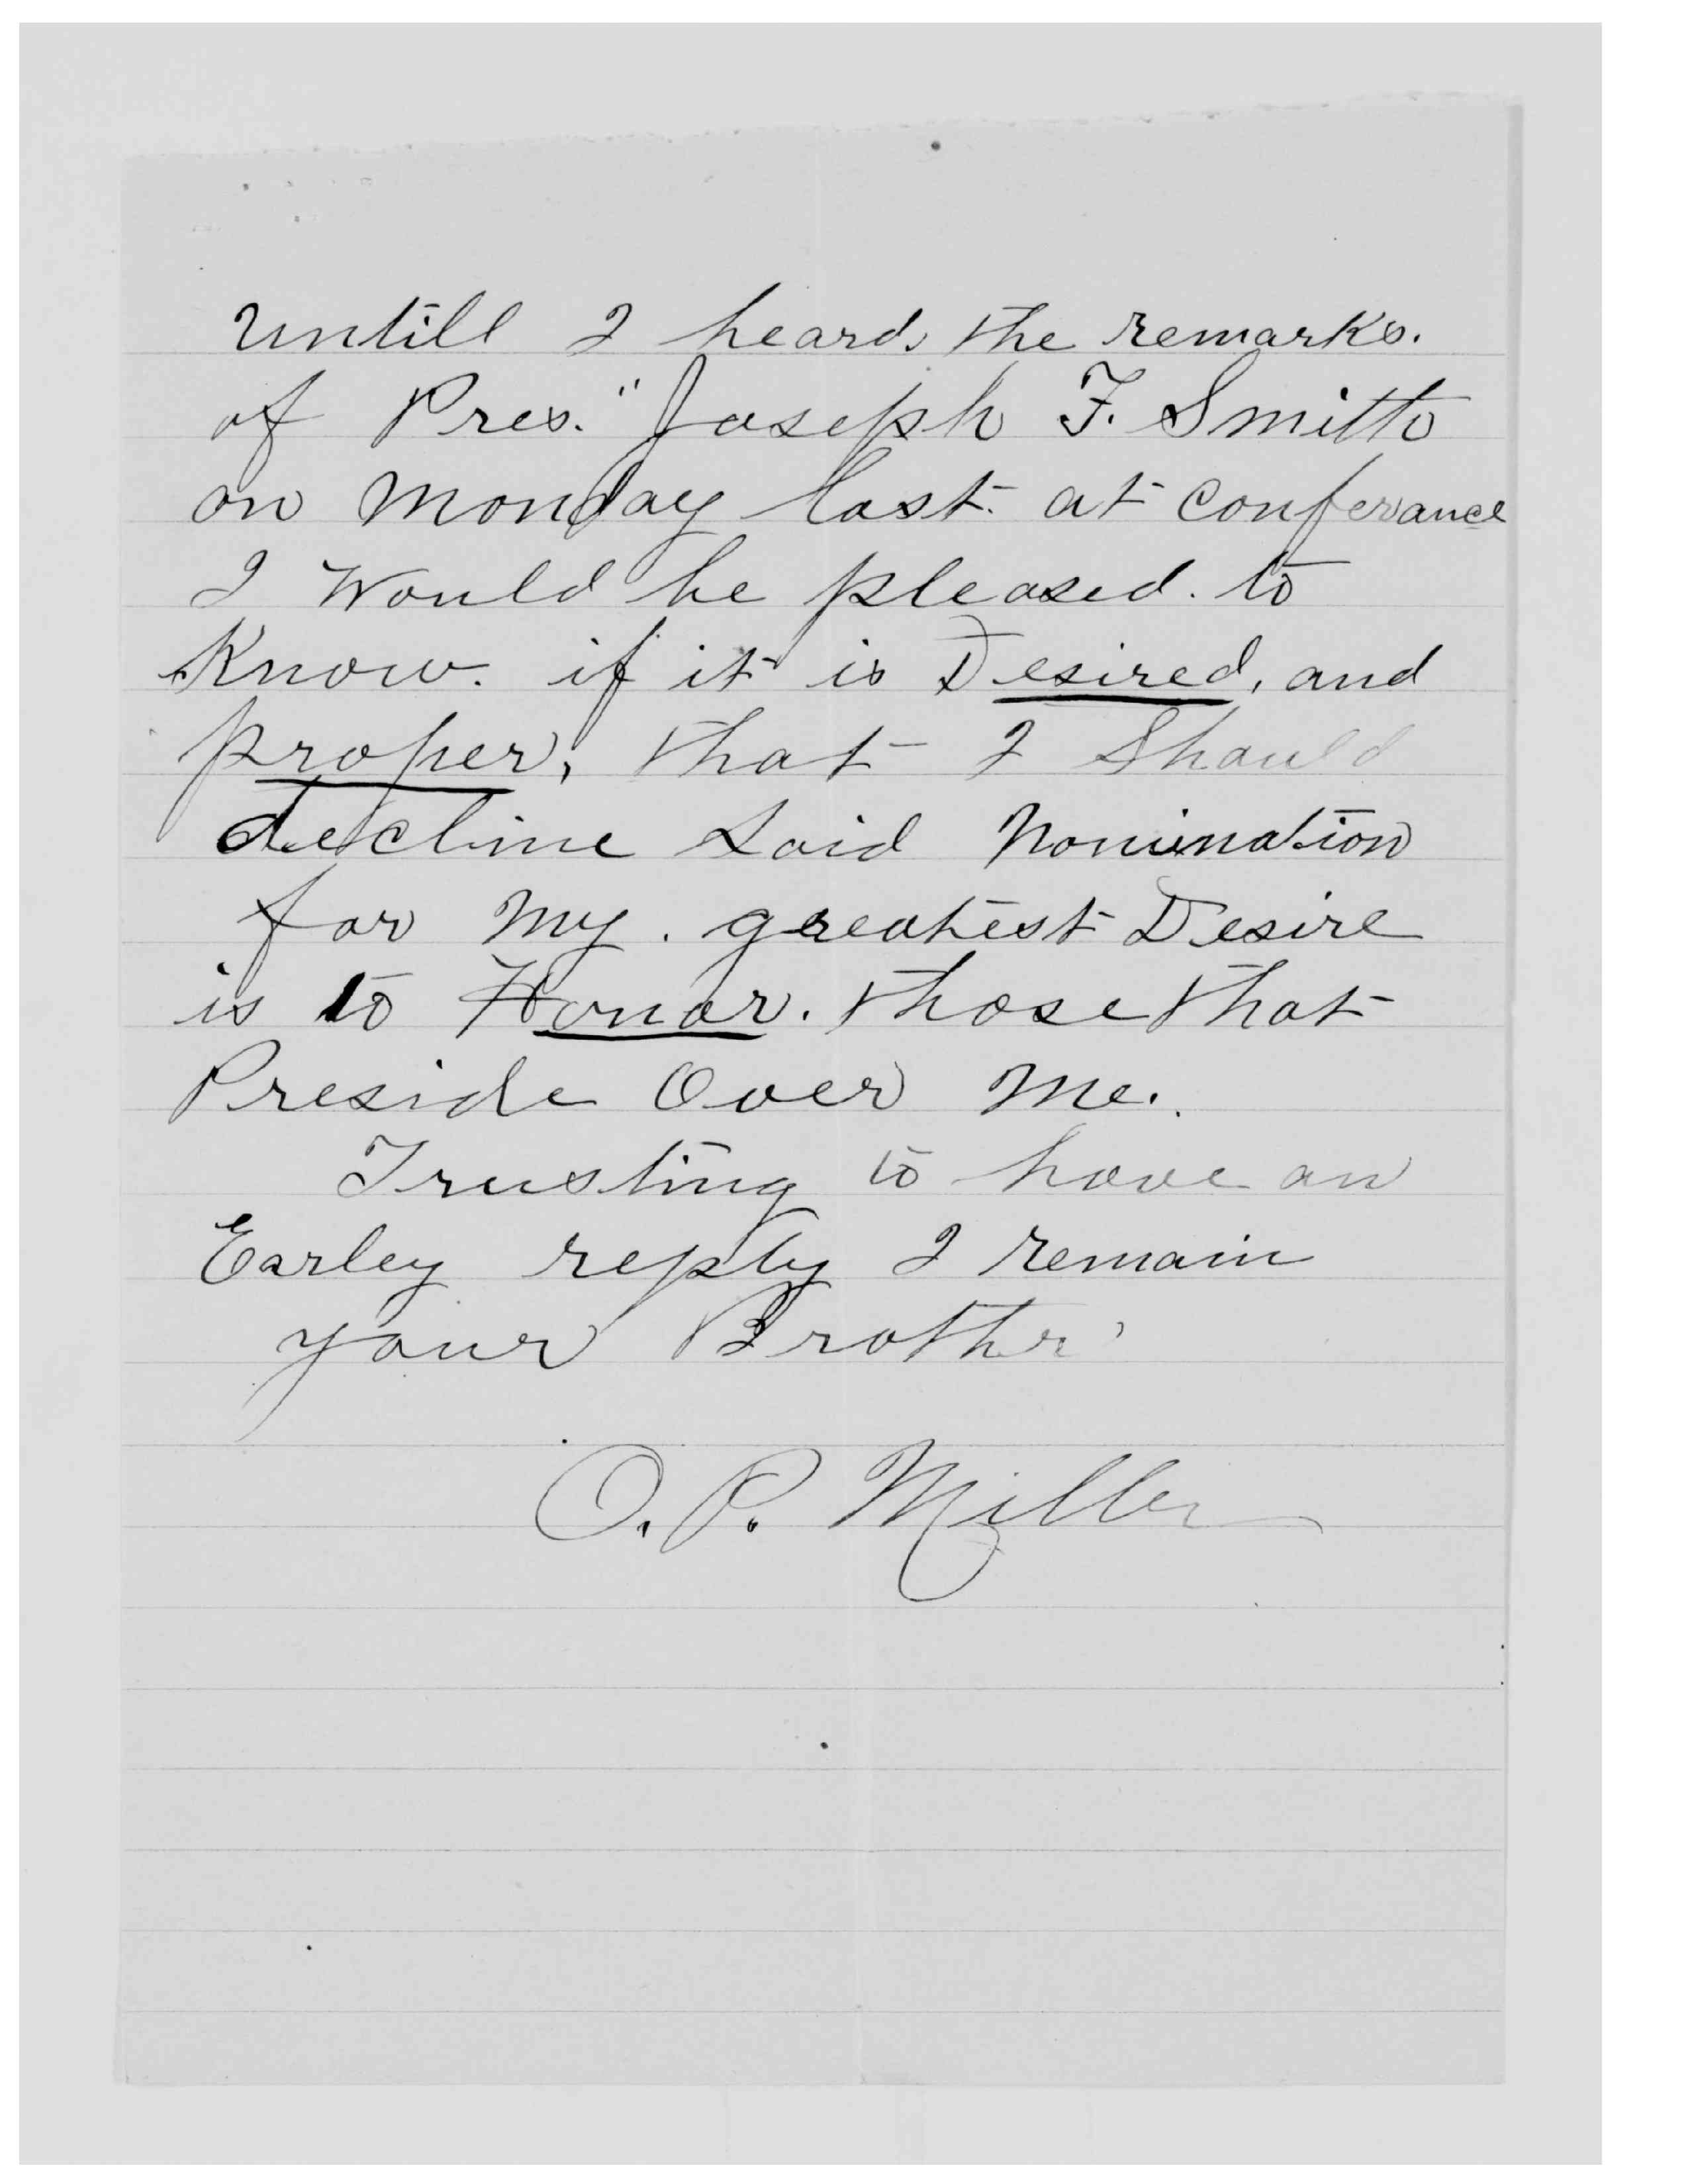 Untill I heard, the remarks.
of Pres." Joseph F. Smith
on Monday last. at conferance
I Would be pleased. to
Know. if it is Desired, and
proper, that I Should
decline said Nomination
for My. greatest Desire
is to Honor. those that
Preside Over Me.
Trusting to have an
Earley reply I remain
your Brother
O. P. Miller